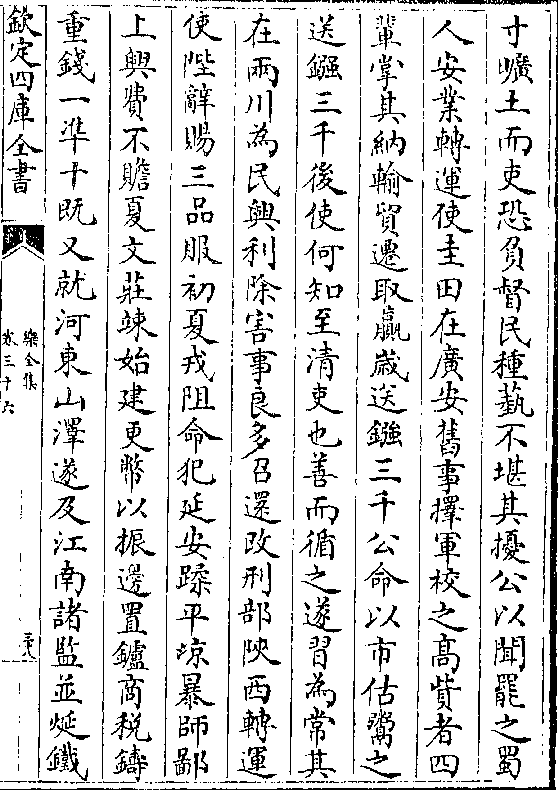 寸曠土而吏恐負督民種藝不堪其擾公以聞罷之蜀
人安業轉運使圭田在廣安舊事擇軍校之高貲者四
輩掌其納輸貿遷取贏歲送鏹三千公命以市估鬻之
送鏹三千後使何知至清吏也善而循之遂習為常其
在兩川為民興利除害事良多召還改刑部陝西轉運
使陛辭賜三品服初夏戎阻命犯延安蹂平凉暴師鄙
上興費不贍夏文莊竦始建更幣以振邊置鑪商稅鑄
重錢一準十既又就河東山澤遂及江南諸監並烻鐵
欽定四庫全書
樂全集
卷三十六